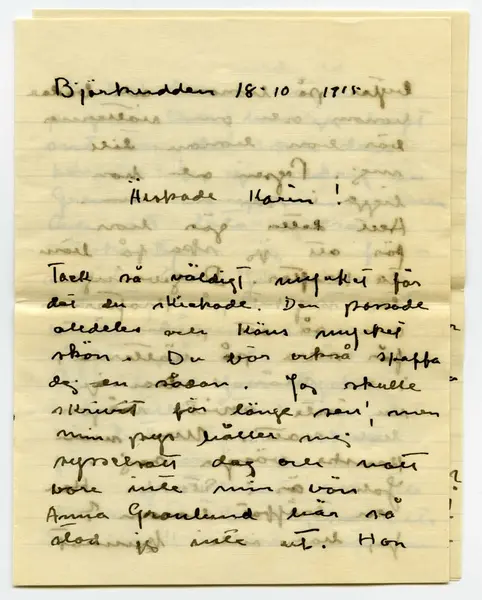 Björkudden 18-10 1915
Älskade Karin!
Tack så väldigt mycket för
det du skickade. Den passade
alldeles och känns mycket
skön. Du bör också skaffa
dig en sådan. Jag skulle
skrivit för länge sen, men
min pyr håller mig
sysselsatt dag och natt
vore inte min vän
Anna Granlund här så
stod jag inte ut. Hon